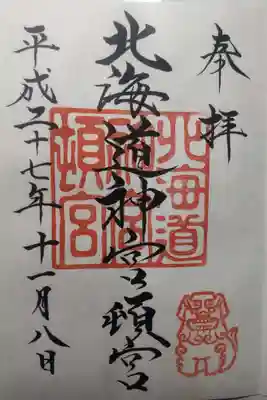 奉拝
北海道神宮頓宮
北海道神宮頓宮
平成二十七年十一月八日